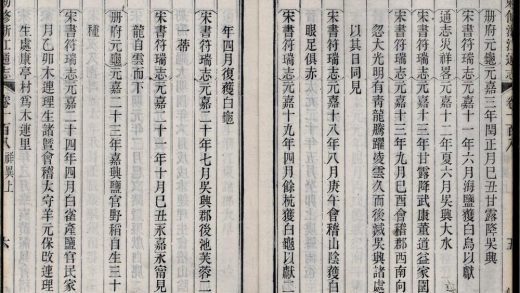 通志卷一百八
五
册府元龜元嘉三年閏正月己丑甘露降
宋書符瑞志元嘉十一年六月海鹽獲白烏以獻
通志災祥畧元嘉十二年夏六月吳興大水
宋書符瑞志元嘉十三年甘露降武康董道益家園
宋書符瑞志元嘉十三年九月己酉會稽郡西南向
忽大光明有青龍騰躍凌雲久而後滅吳興諸處
以其日同見
宋書符瑞志元嘉十八年八月庚午會稽山陰獲白
眼足俱赤
宋書符瑞志元嘉十九年四月餘杭獲白龜以獻二
年四月復獲白龜
宋書符瑞志元嘉二十年七月吳興郡後池芙蓉二
一蔕
宋書符瑞志元嘉二十一年十月己丑永嘉永甯見
龍自雲而下
册府元龜元嘉二十三年嘉興鹽官野稻自生三十
種
宋書符瑞志元嘉二十四年四月白雀產鹽官民家
月乙卯木連理生諸暨會稽太守羊元保改連理
生處康亭村爲木連里
敕修浙江通志
卷一百八
祥異上
六